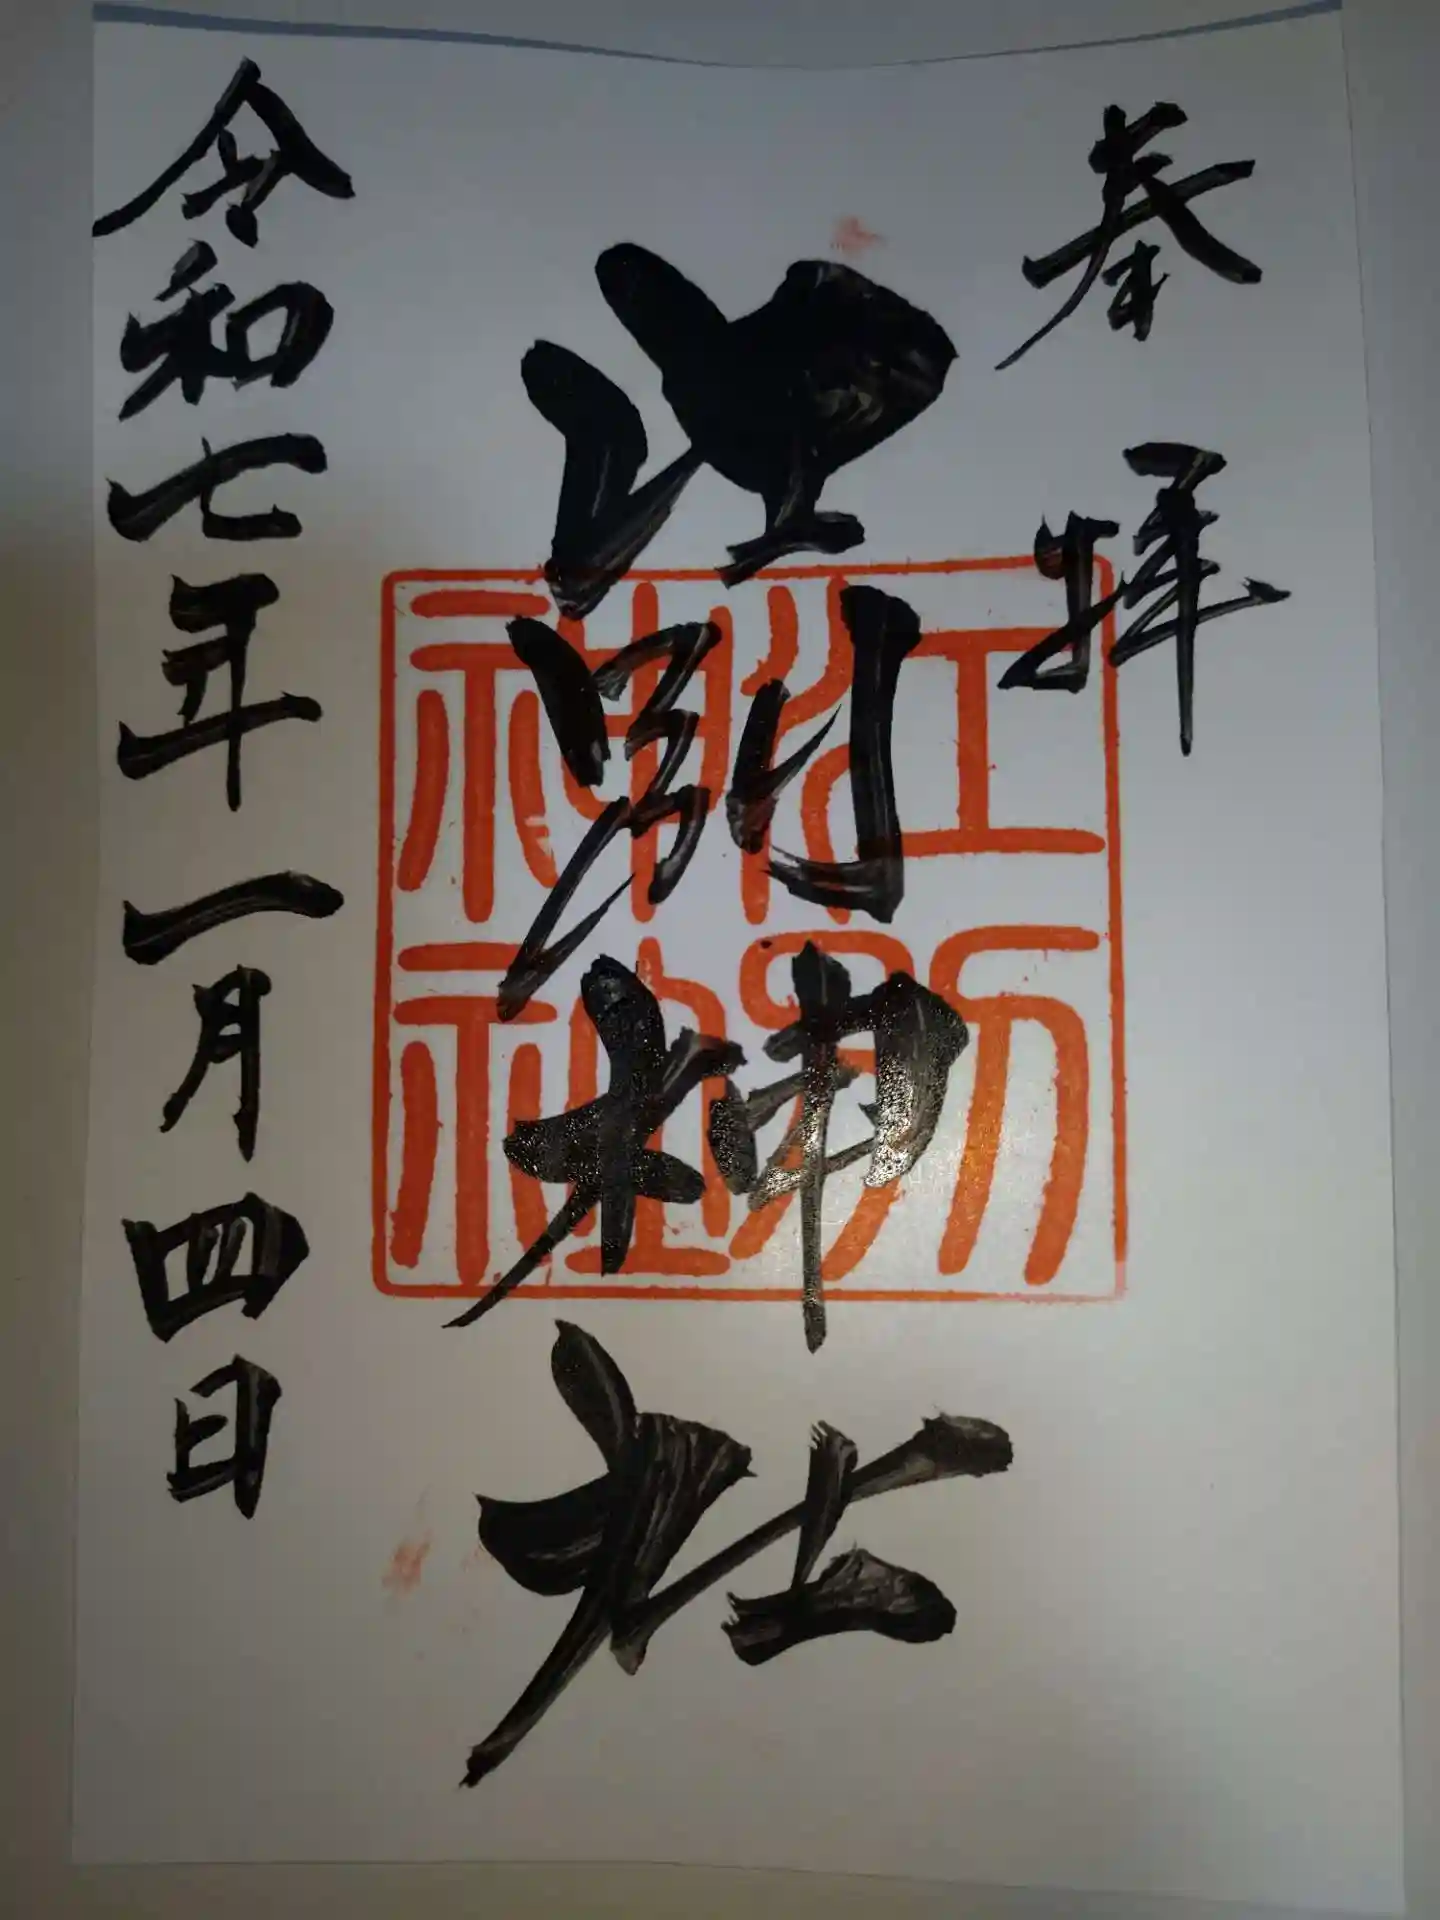 奉拝
江別神社
江別
神社
令和七年一月四日